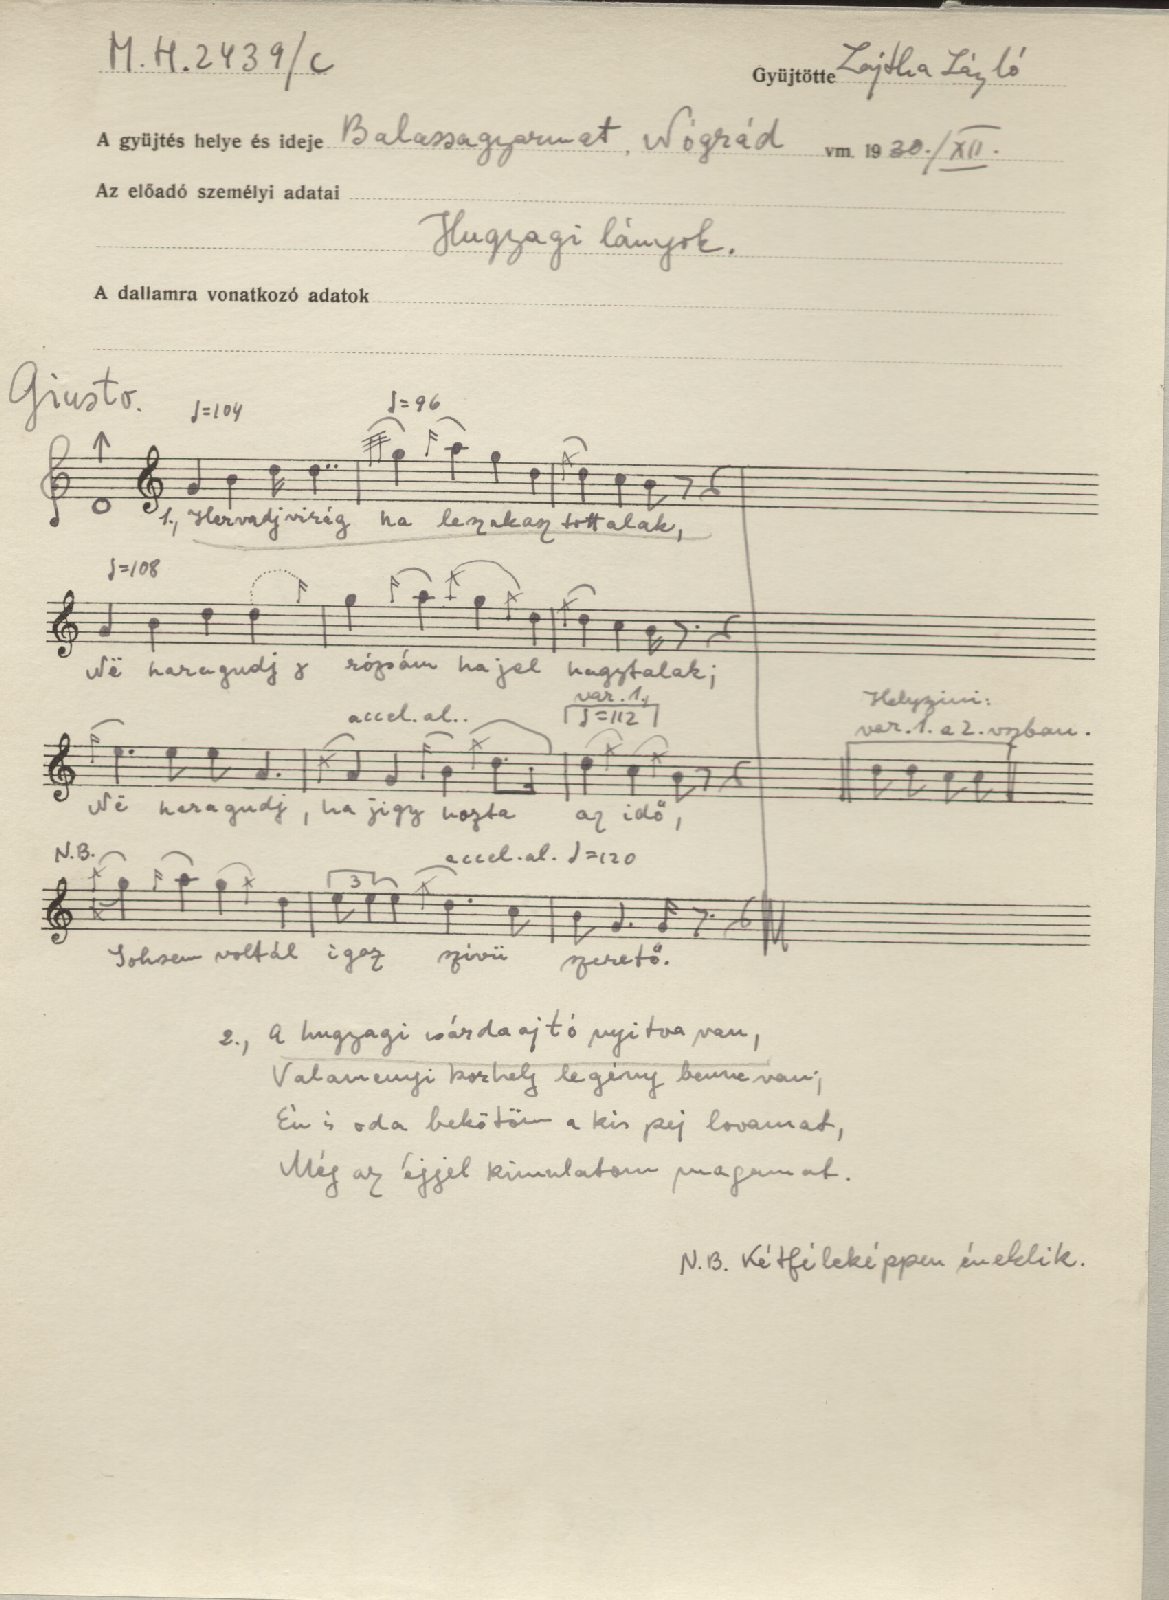 M.H.2439/c
Gyüjtötte Lajtha László
A gyüjtés helye és ideje Balassagyarmat, Nógrád vm. 1930./XII.
Az előadó személyi adatai
Hugyagi lányok.
A dallamra vonatkozó adatok
Giusto.
♩=104 ♩=96
1., Hervadj virág ha leszakasztottalak,
♩=108
Në haragudj rózsám ha jel hagytalak;
accel. al.. var. 1. ♩=112 Helyszíni: var. 1. a 2. vszban.
Në haragudj, ha jigy hozta az idő,
N.B. 3 accel. al. ♩=120
Sohsem voltál igaz szívü szerető.
2., A hugyagi csárdaajtó nyitva van,
Valamenyi korhely legény benne van;
Én is oda bekötöm a kis pej lovamat,
Még az éjjel kimulatom magamat.
N.B. Kétféleképpen éneklik.